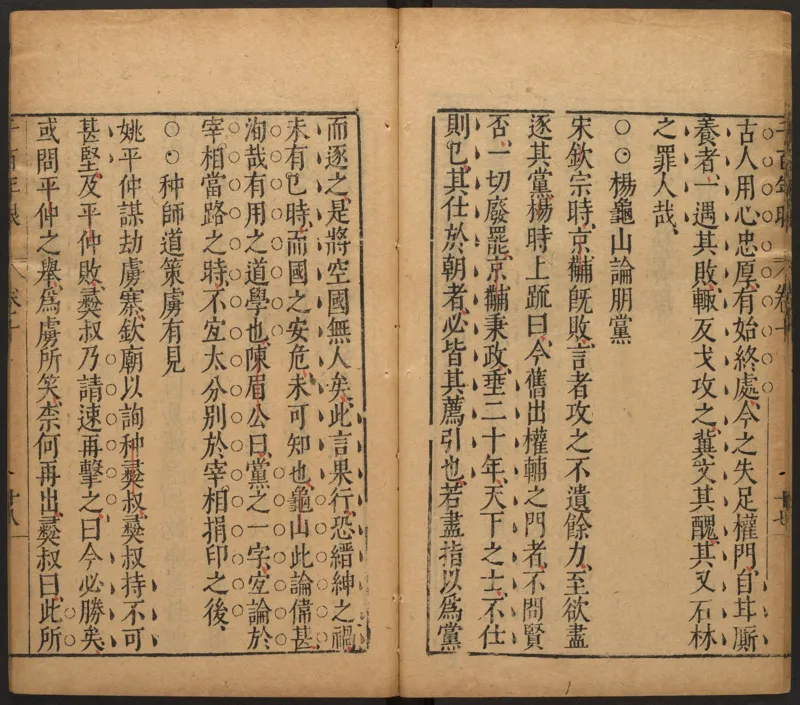 古人用心忠厚有始終處今之失足權門自甘廝
養者一遇其敗輙反戈攻之冀文其醜其又石林
之罪人哉
○○楊龜山論朋黨
宋欽宗時京黼旣敗言者攻之不遺餘力至欲盡
逐其黨楊時上䟽曰今舊出權輔之門者不問賢
否一切廢罷京黼秉政垂二十年天下之士不仕
則已其仕於朝者必皆其薦引也若盡指以爲黨
而逐之是將空國無人矣此言果行恐縉紳之禍
未有已時而國之安危未可知也龜山此論偹甚
洵哉有用之道學也陳眉公曰黨之一字宐論於
宰相當路之時不宐太分別於宰相捐印之後
○○种師道策虜有見
姚平仲謀劫虜寨欽廟以詢种彛叔彛叔持不可
甚堅及平仲敗彛叔乃請速再擊之曰今必勝矣
或問平仲之舉爲虜所笑柰何再出彛叔曰此所